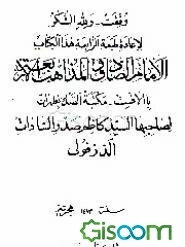 وفقت - ولله الشكر
لإعادة طبعة الرابعة هذا الكتاب
الإمام الصادق والمذاهب الأربعة
بالأفست - مكتبة الصدر بطهران
لصاحبها السيد كاظم صدر السادات
الدزفولي
سنة هجرية
Gisoom
.com